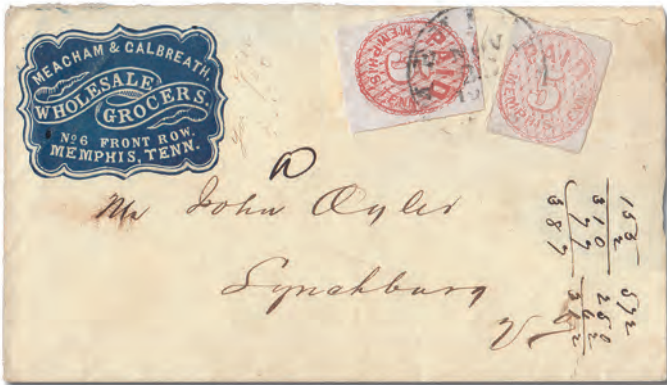 MEACHAM & CALBREATH.
WHOLESALE
GROCERS.
No 6 FRONT ROW.
MEMPHIS, TENN.
PAID
5
MEMPHIS, TENN.
PAID
5
MEMPHIS, TENN.
Mr John Oyler
Lynchburg
Va
155
2
310
77
387